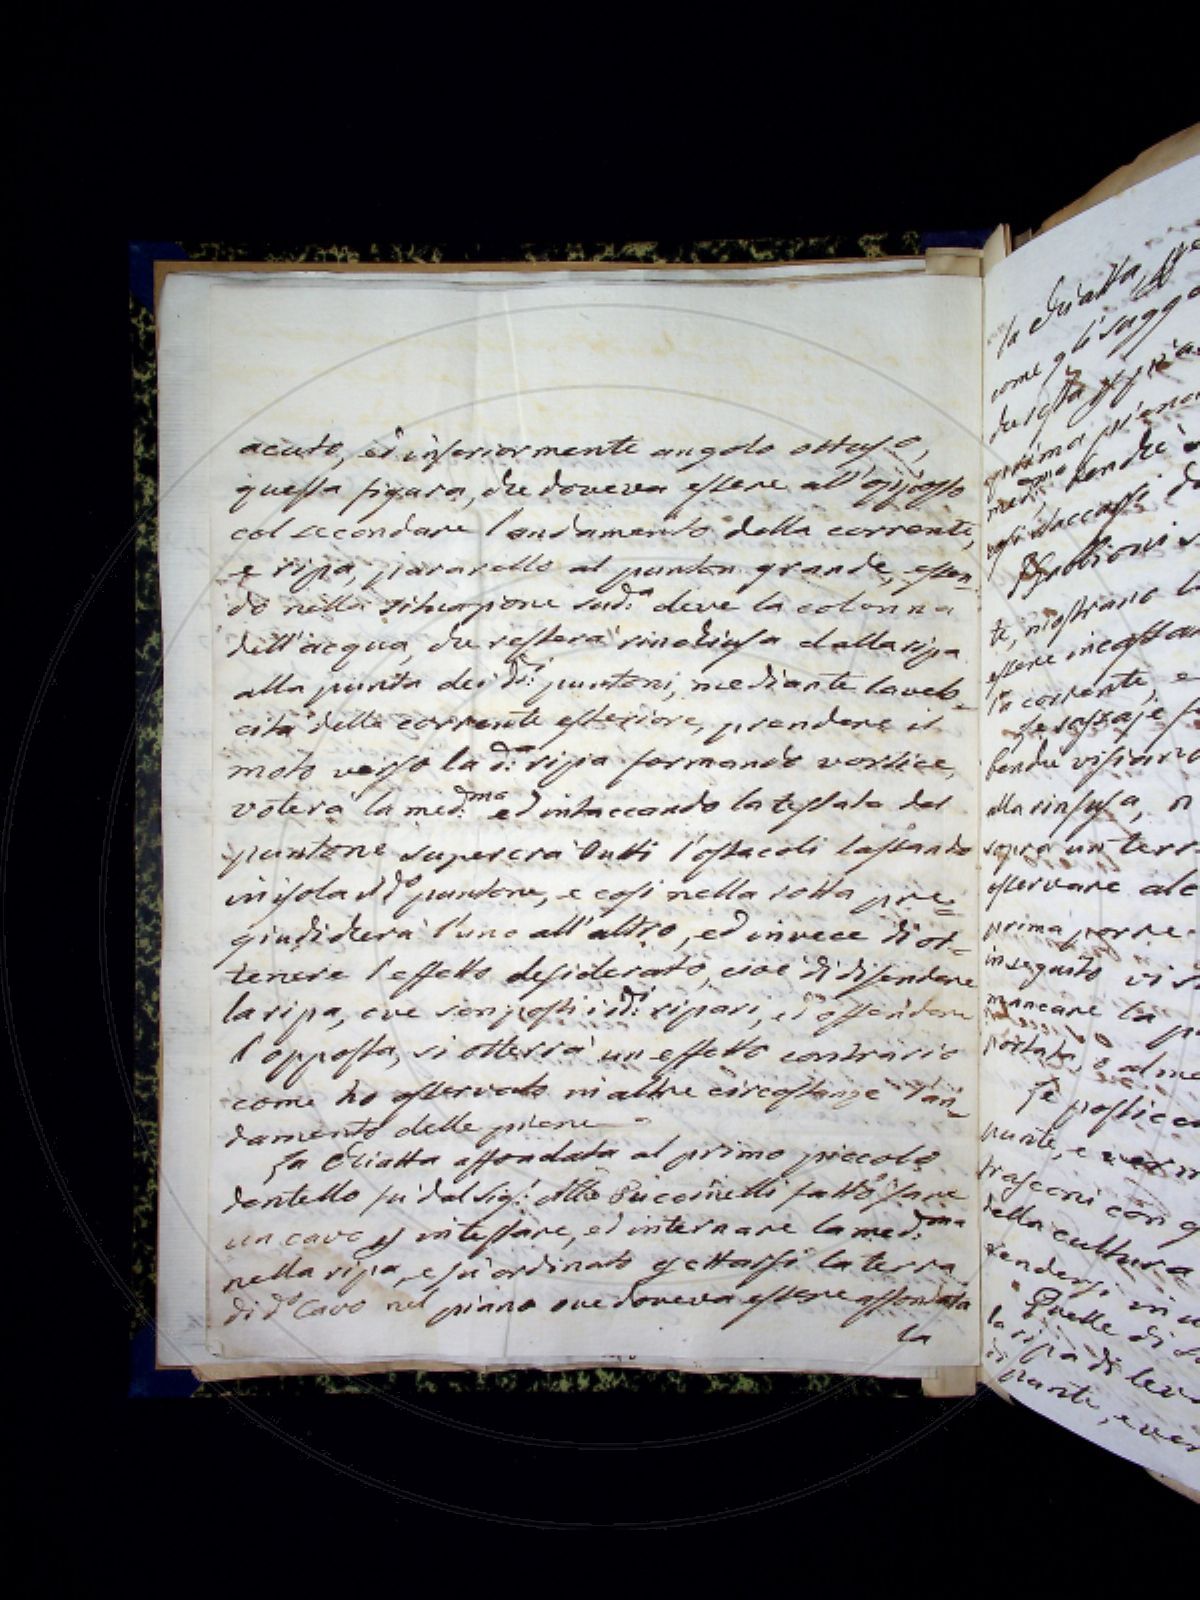 acuto, ed inferiormente angolo ottuso,
questa figura, che doveva essere all'opposto
col secondare l'andamento della corrente,
e ripa, pararello al punton grande, essen-
do nella situazione sud.a deve la colonna
dell'acqua, che resterà rinchiusa dalla ripa
alla punta dei d.i puntoni, mediante la velo-
cità della corrente esteriore, prendere il
moto verso la d.a ripa formando vortice,
voterà la med.ma ed intaccando la testata del
puntone supererà tutti l'ostacoli lasciando
in isola il d.o puntone, e così nella rotta pre-
giudicherà l'uno all'altro, ed invece di ot-
tenere l'effetto desiderato, cioè di difendere
la ripa, ove son posti i d.i ripari, ed offendere
l'opposta, si otterrà un effetto contrario
come ho osservato in altre circostanze l'an-
damento delle piene
La Chiatta affondata al primo piccolo
dentello fù dal Sig.r Puccinelli fatto fare
un cavo p intestare, ed internare la med.ma
nella ripa, e fù ordinato gettarsi la terra
di d.o Cavo nel piano ove doveva essere affondata
la
la Chiatta,
come gli
prima
te, mostrano
essere
la corrente, e
benche
alla rinfusa, n
sopra un terr
osservare alc
prima porre
in seguito vi
mancare la p
portata, o alme
Se postic
punte, e
trasconi con
della cultura
rendersi in
Quelle di
la ripa di leva
di punte, e ver